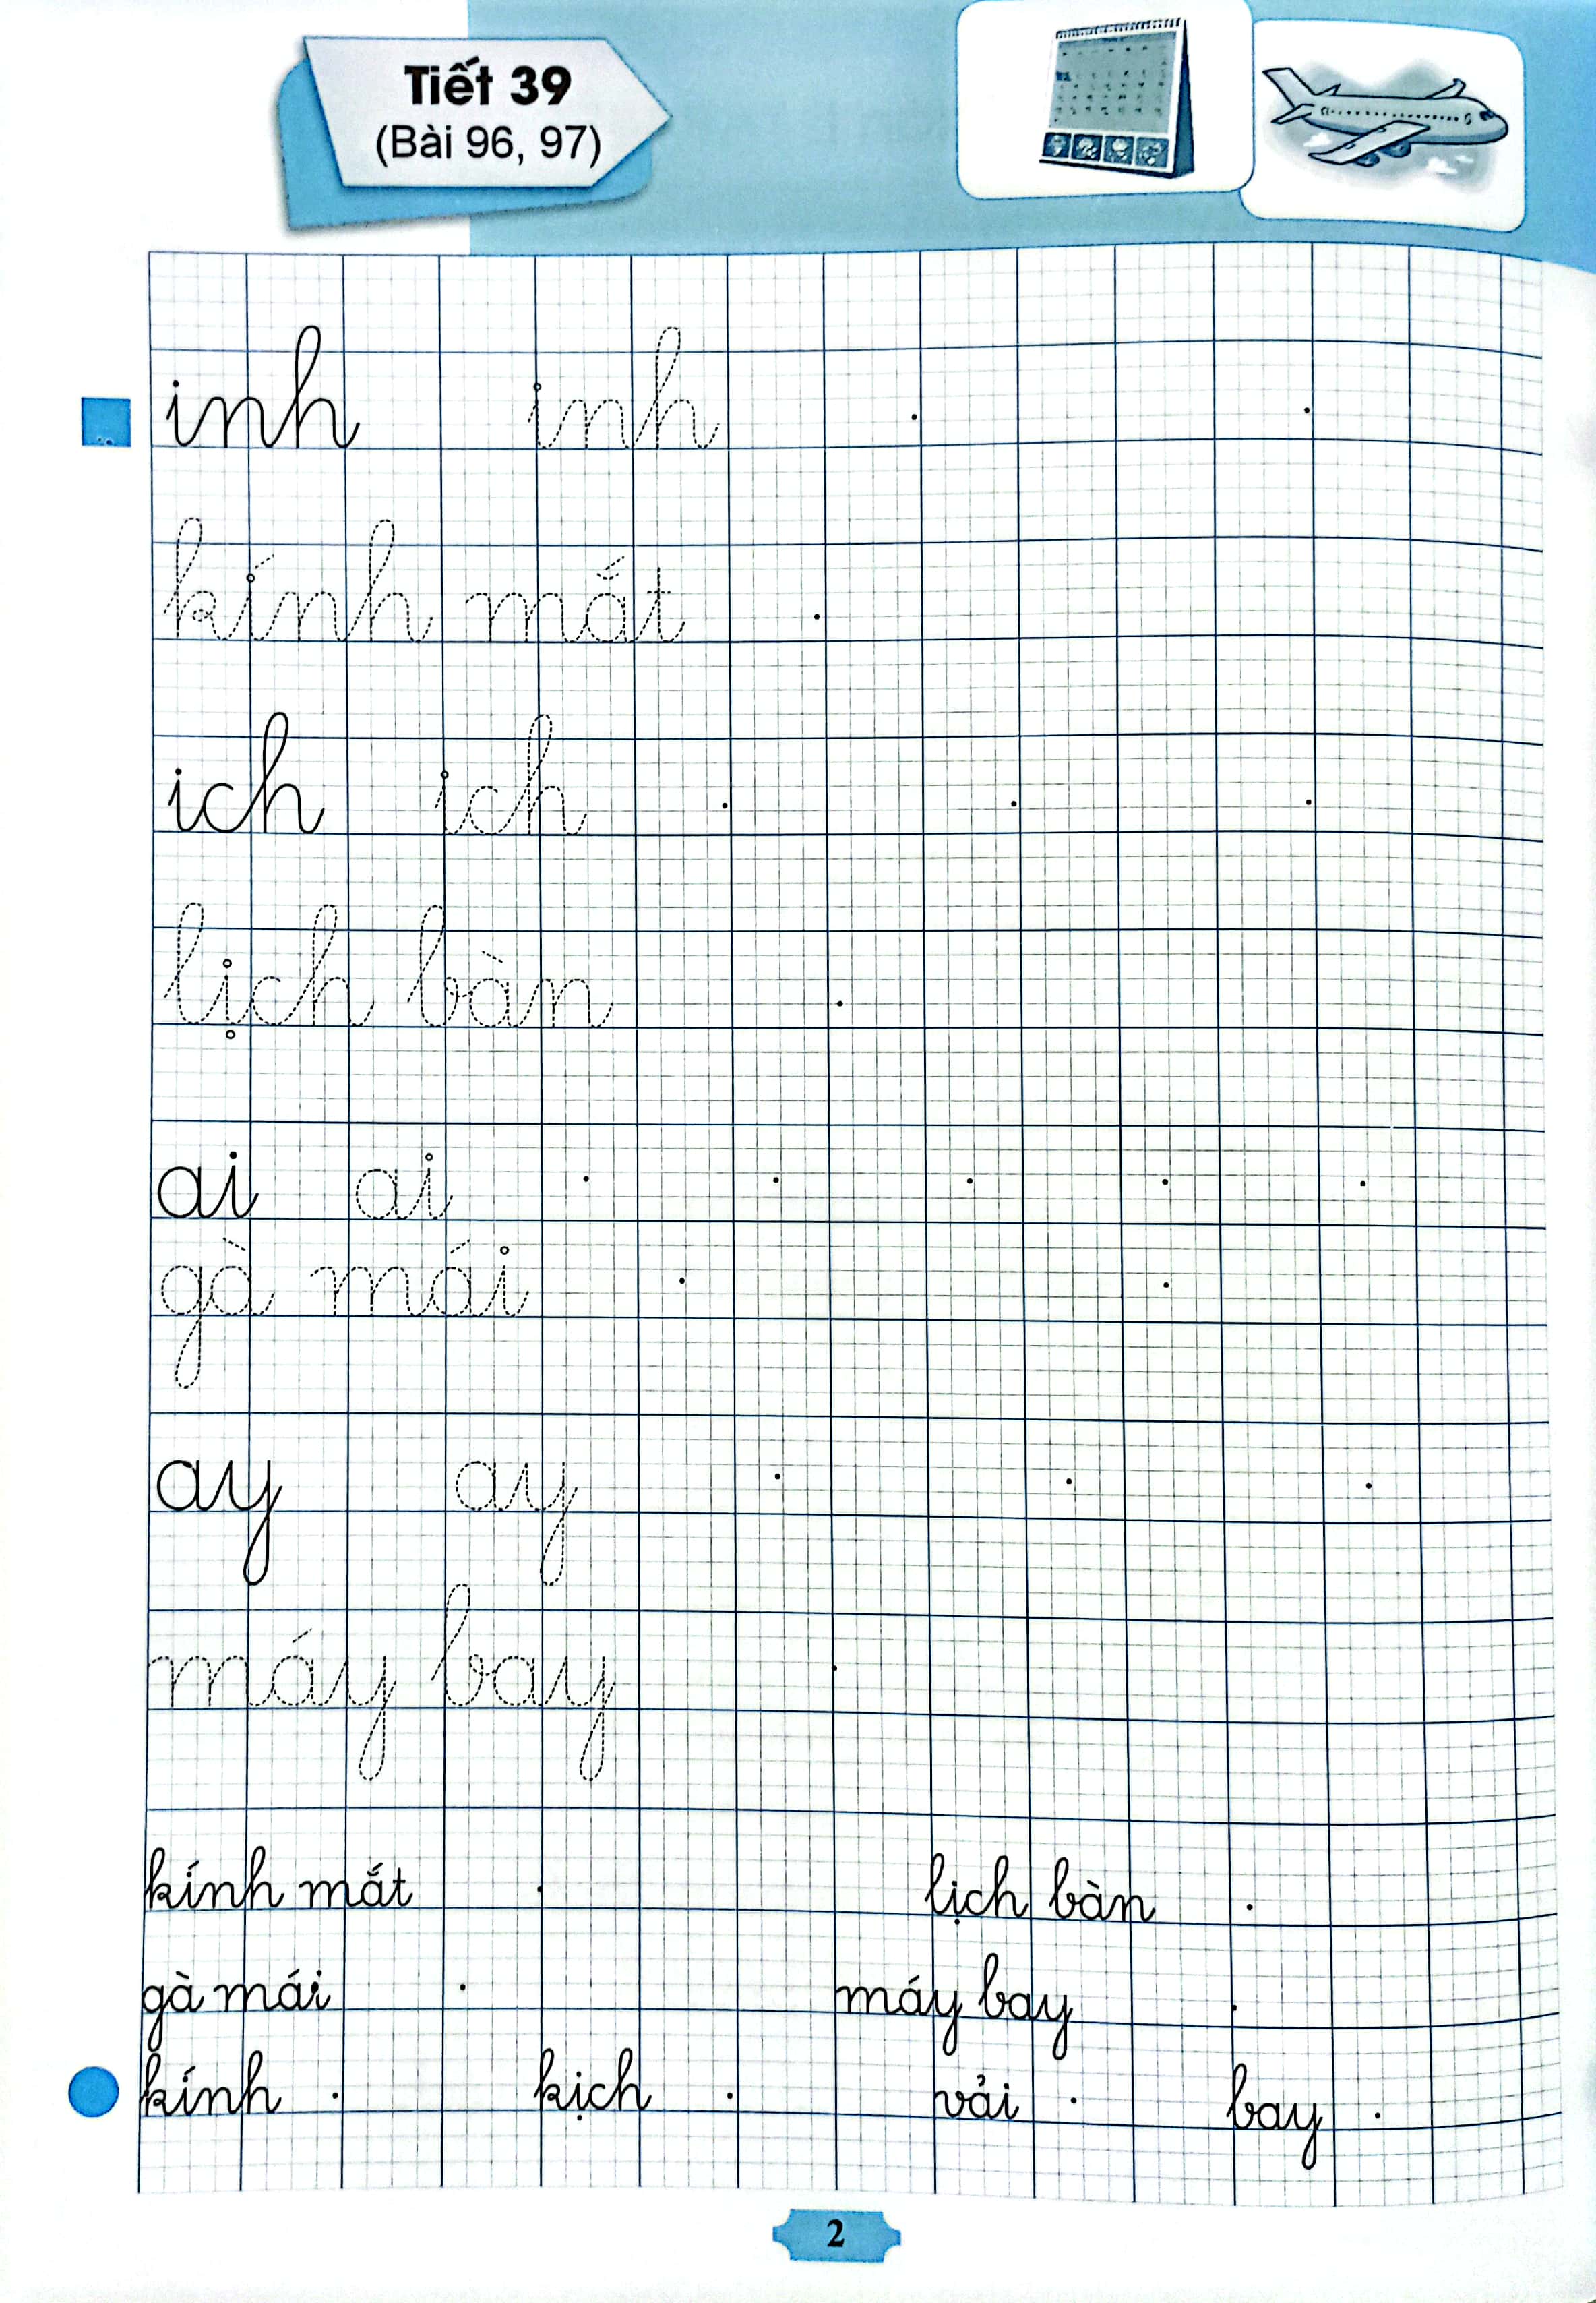 Tiết 39
(Bài 96, 97)
inh inh
kính mắt
ich ich
lịch bàn
ai ai
gà mái
ay ay
máy bay
kính mắt lịch bàn
gà mái máy bay
kính kịch vải bay
2